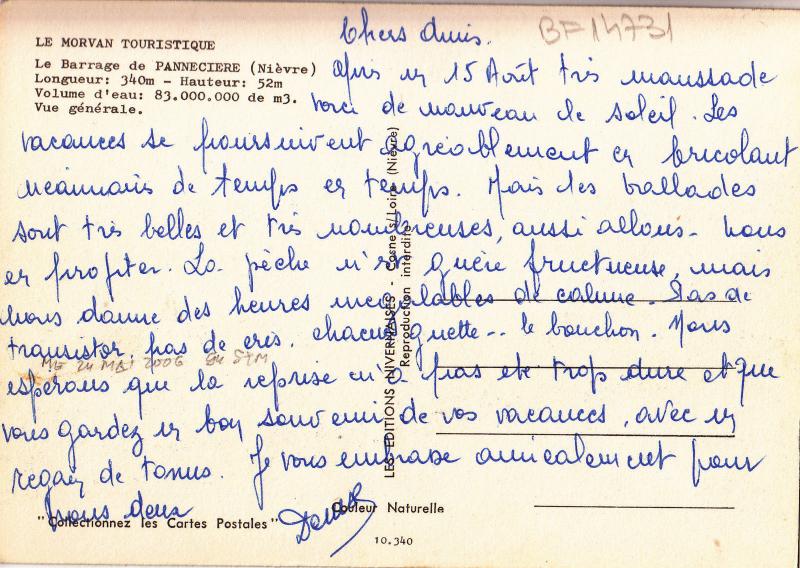 LE MORVAN TOURISTIQUE
Le Barrage de PANNECIERE (Nièvre)
Longueur: 340m - Hauteur: 52m
Volume d'eau: 83.000.000 de m3.
Vue générale.
BF 14731
Chers Amis.
Après un 15 Août très maussade
voici de nouveau le soleil. Les
vacances se poursuivent agréablement en bricolant
néanmoins de temps en temps. Mais les ballades
sont très belles et très nombreuses, aussi allons-nous
en profiter. La pêche n'est guère fructueuse, mais
nous donne des heures de calme. Pas de
transistor, pas de cris, chacun guette.. le bouchon. Nous
espérons que la reprise n'a pas été trop dure et que
vous gardez un bon souvenir de vos vacances, avec un
regain de tonus. Je vous embrasse amicalement pour
nous deux
LES EDITIONS NIVERNAISES - Cosne s/Loire (Nièvre)
Reproduction interdite
Couleur Naturelle
"Collectionnez les Cartes Postales"
10.340